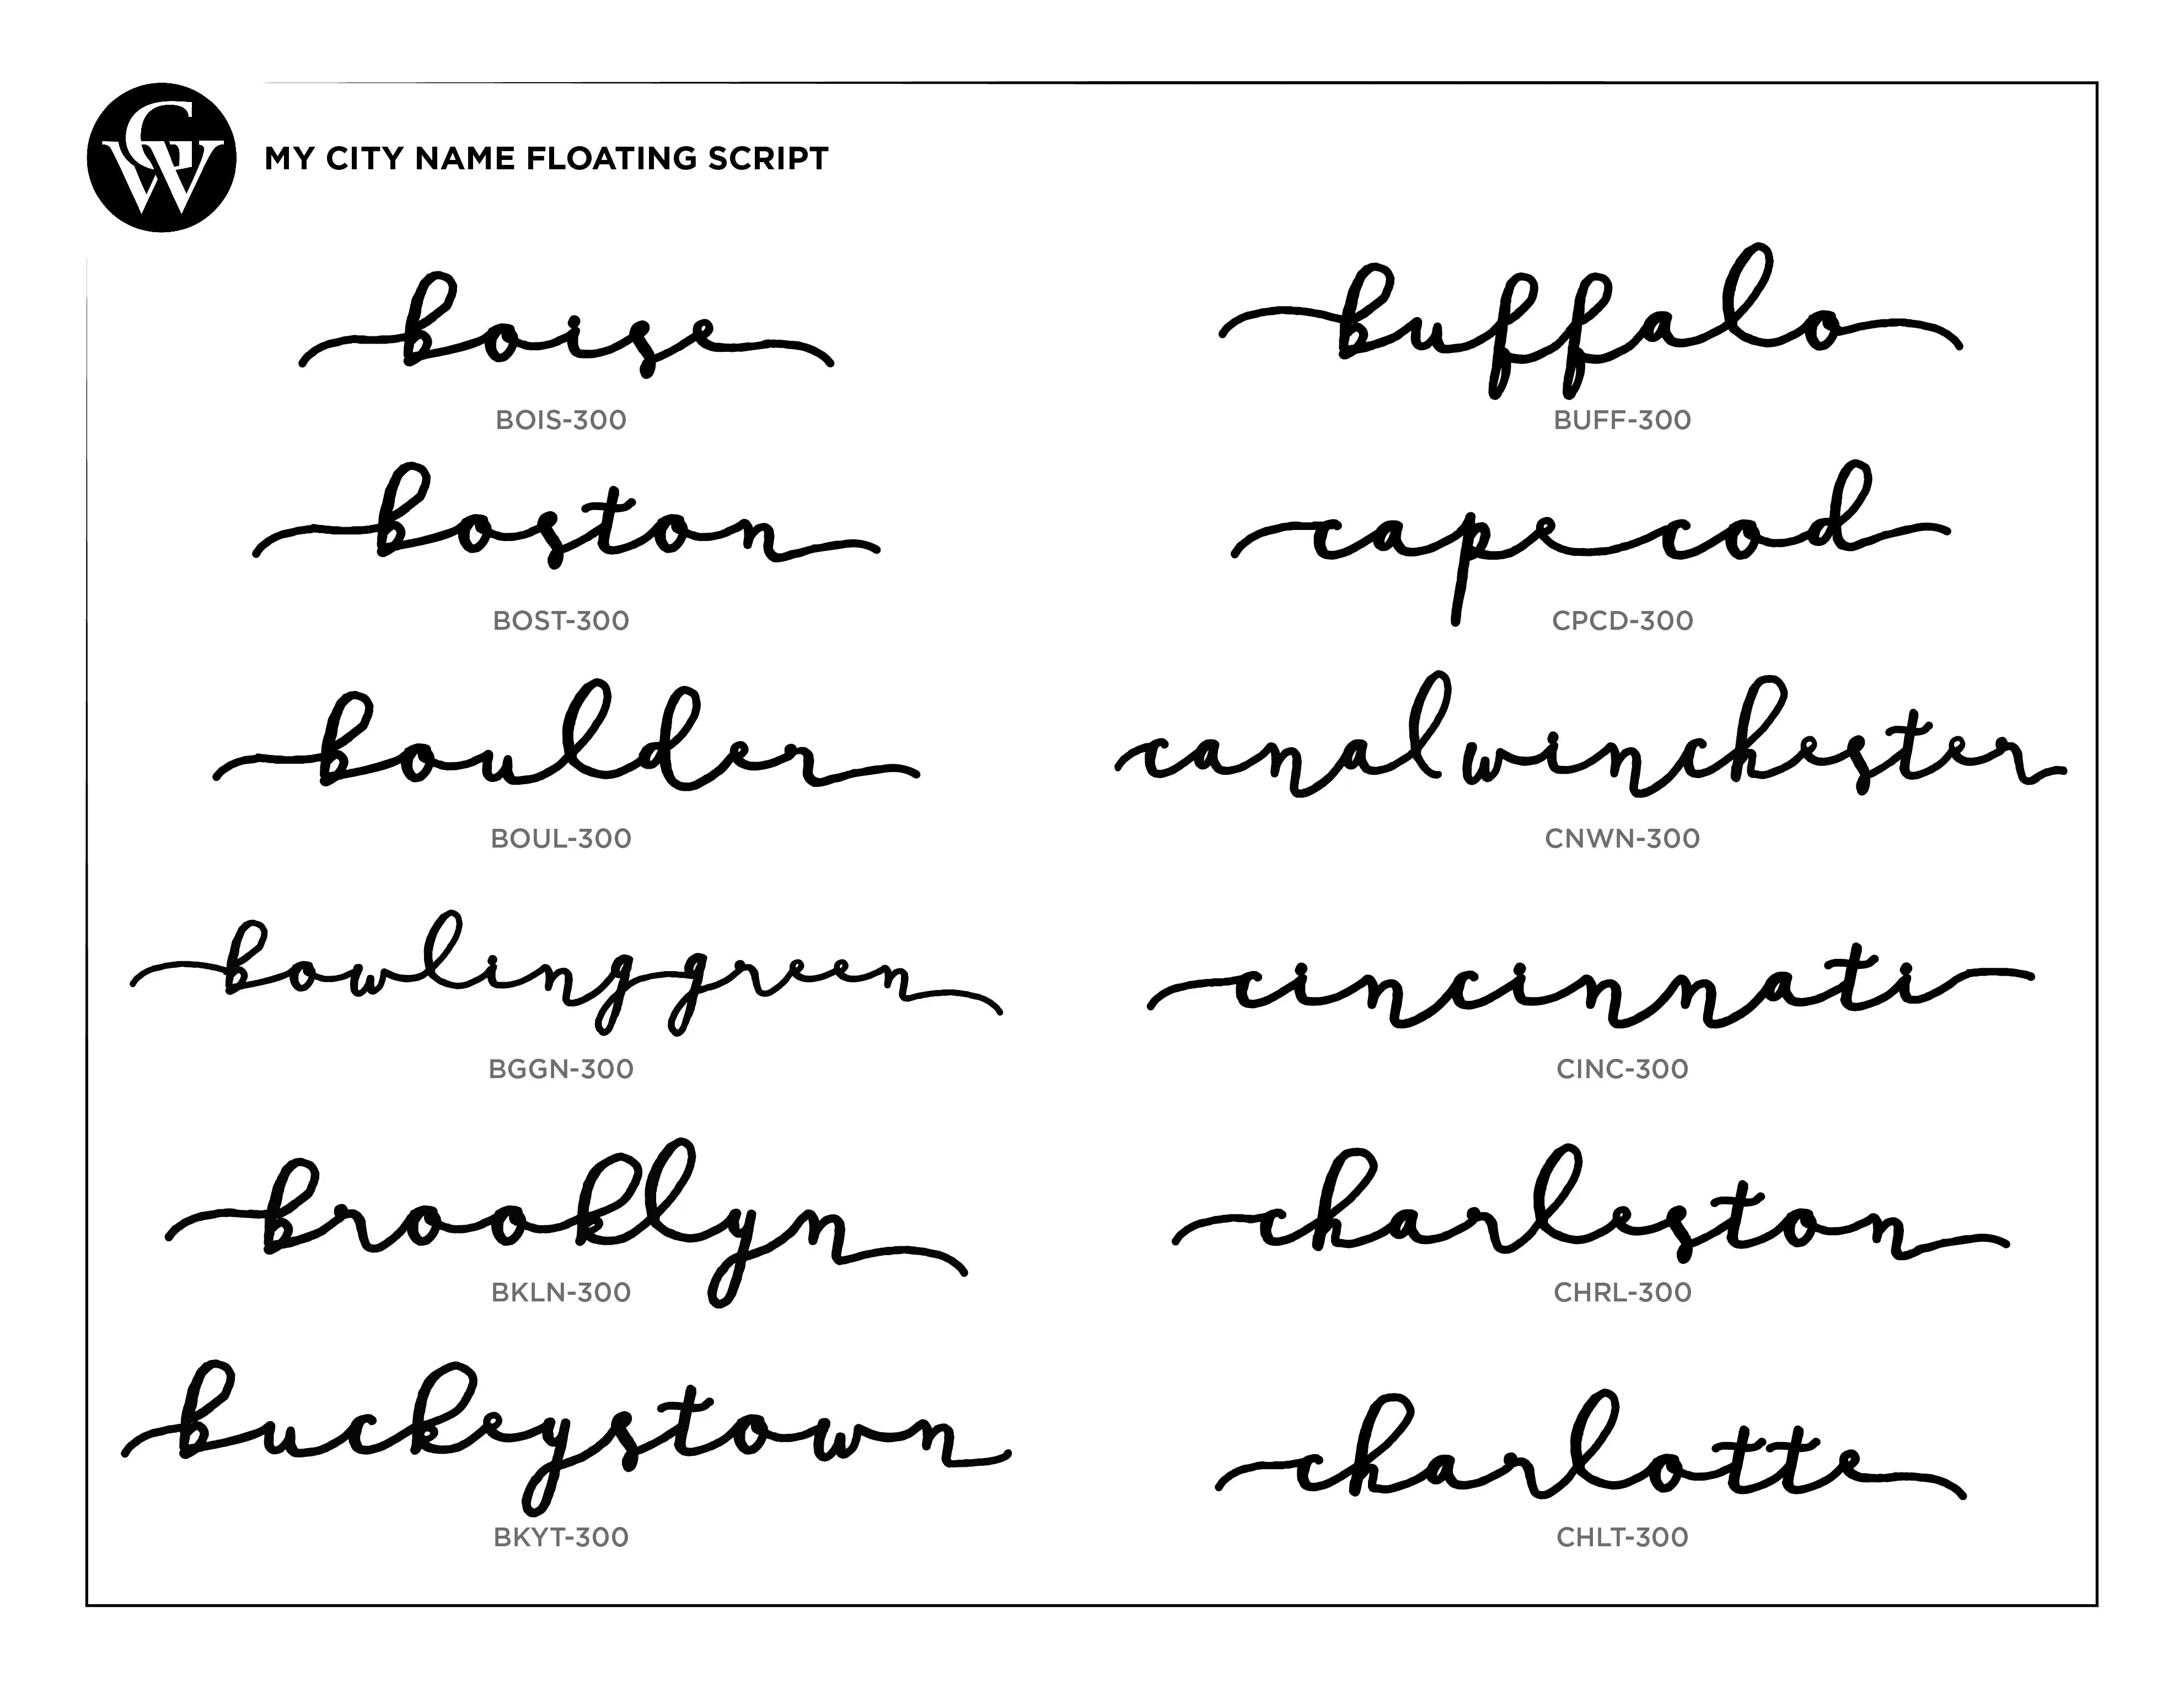 CW
MY CITY NAME FLOATING SCRIPT
boise
BOIS-300
boston
BOST-300
boulder
BOUL-300
bowlinggreen
BGGN-300
brooklyn
BKLN-300
buckeystown
BKYT-300
buffalo
BUFF-300
cape cod
CPCD-300
canalwinchester
CNWN-300
cincinnati
CINC-300
charleston
CHRL-300
charlotte
CHLT-300